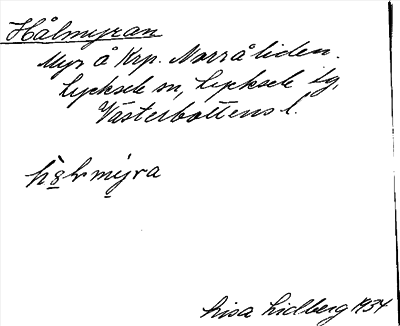 Hålmyran
Myr å Krp. Norråliden.
Lycksele sn, Lycksele tg,
Västerbottens l.
Lisa Lidberg 1934